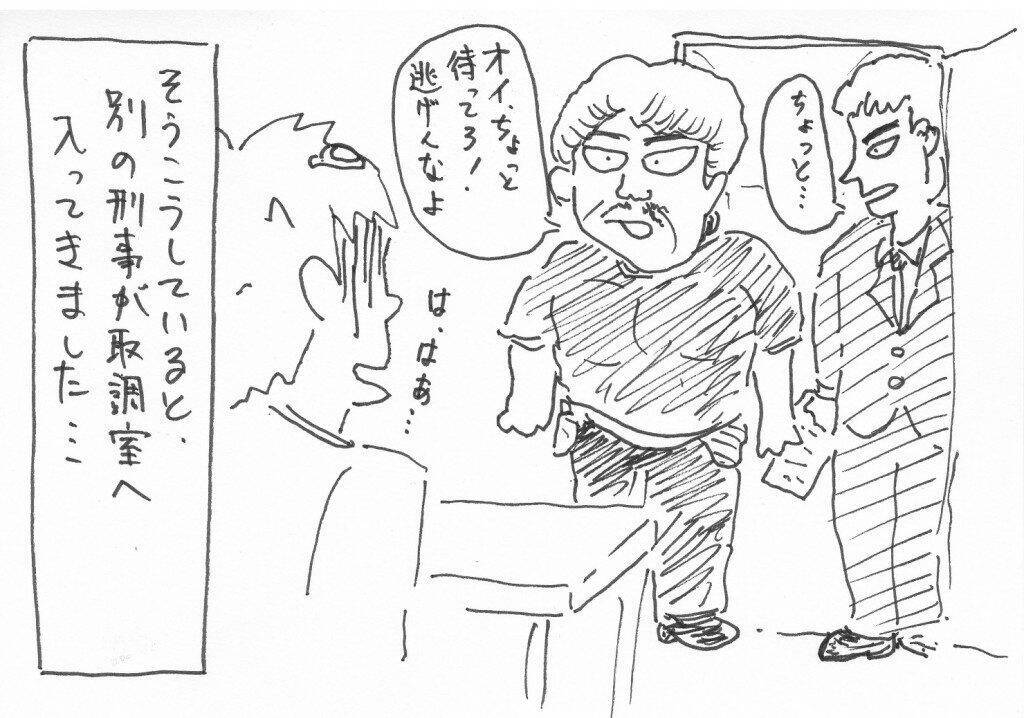 ちょっと…
オイ、ちょっと
待ってろ!
逃げんなよ
は、はぁ…
そうこうしていると、
別の刑事が取調室へ
入ってきました…